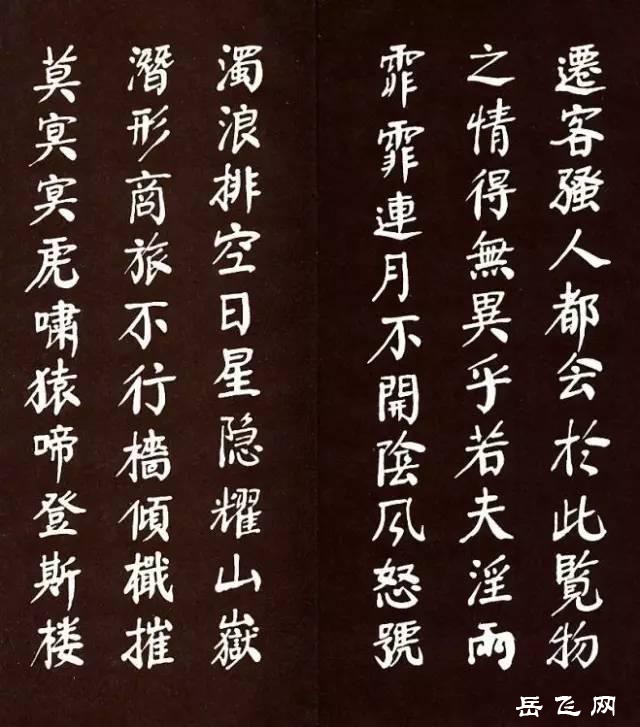 遷客騷人都会於此覧物
之情得無異乎若夫淫雨
霏霏連月不開陰风怒號
濁浪排空日星隐耀山嶽
潛形商旅不行檣傾檝摧
莫冥冥虎嘯猿啼登斯楼
岳飞网